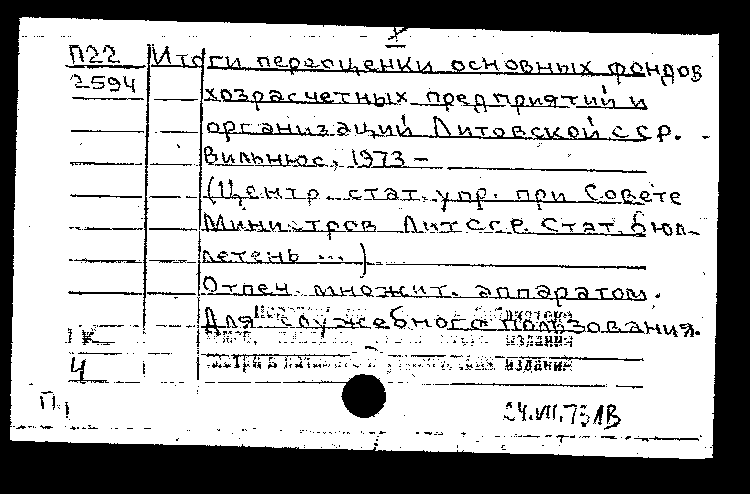 X
П22 Итоги переоценки основных фондов
2594 хозрасчетных предприятий и
организаций Литовской сср.
Вильнюс, 1973 –
(Центр. стат. упр. при Совете
Министров ЛитССР. Стат. бюл-
летень ... )
Отпеч. множит. аппаратом.
Для служебного пользования.
1 К издания
4 смотри в каталоге издания
П.
24.VII.75 ЛВ